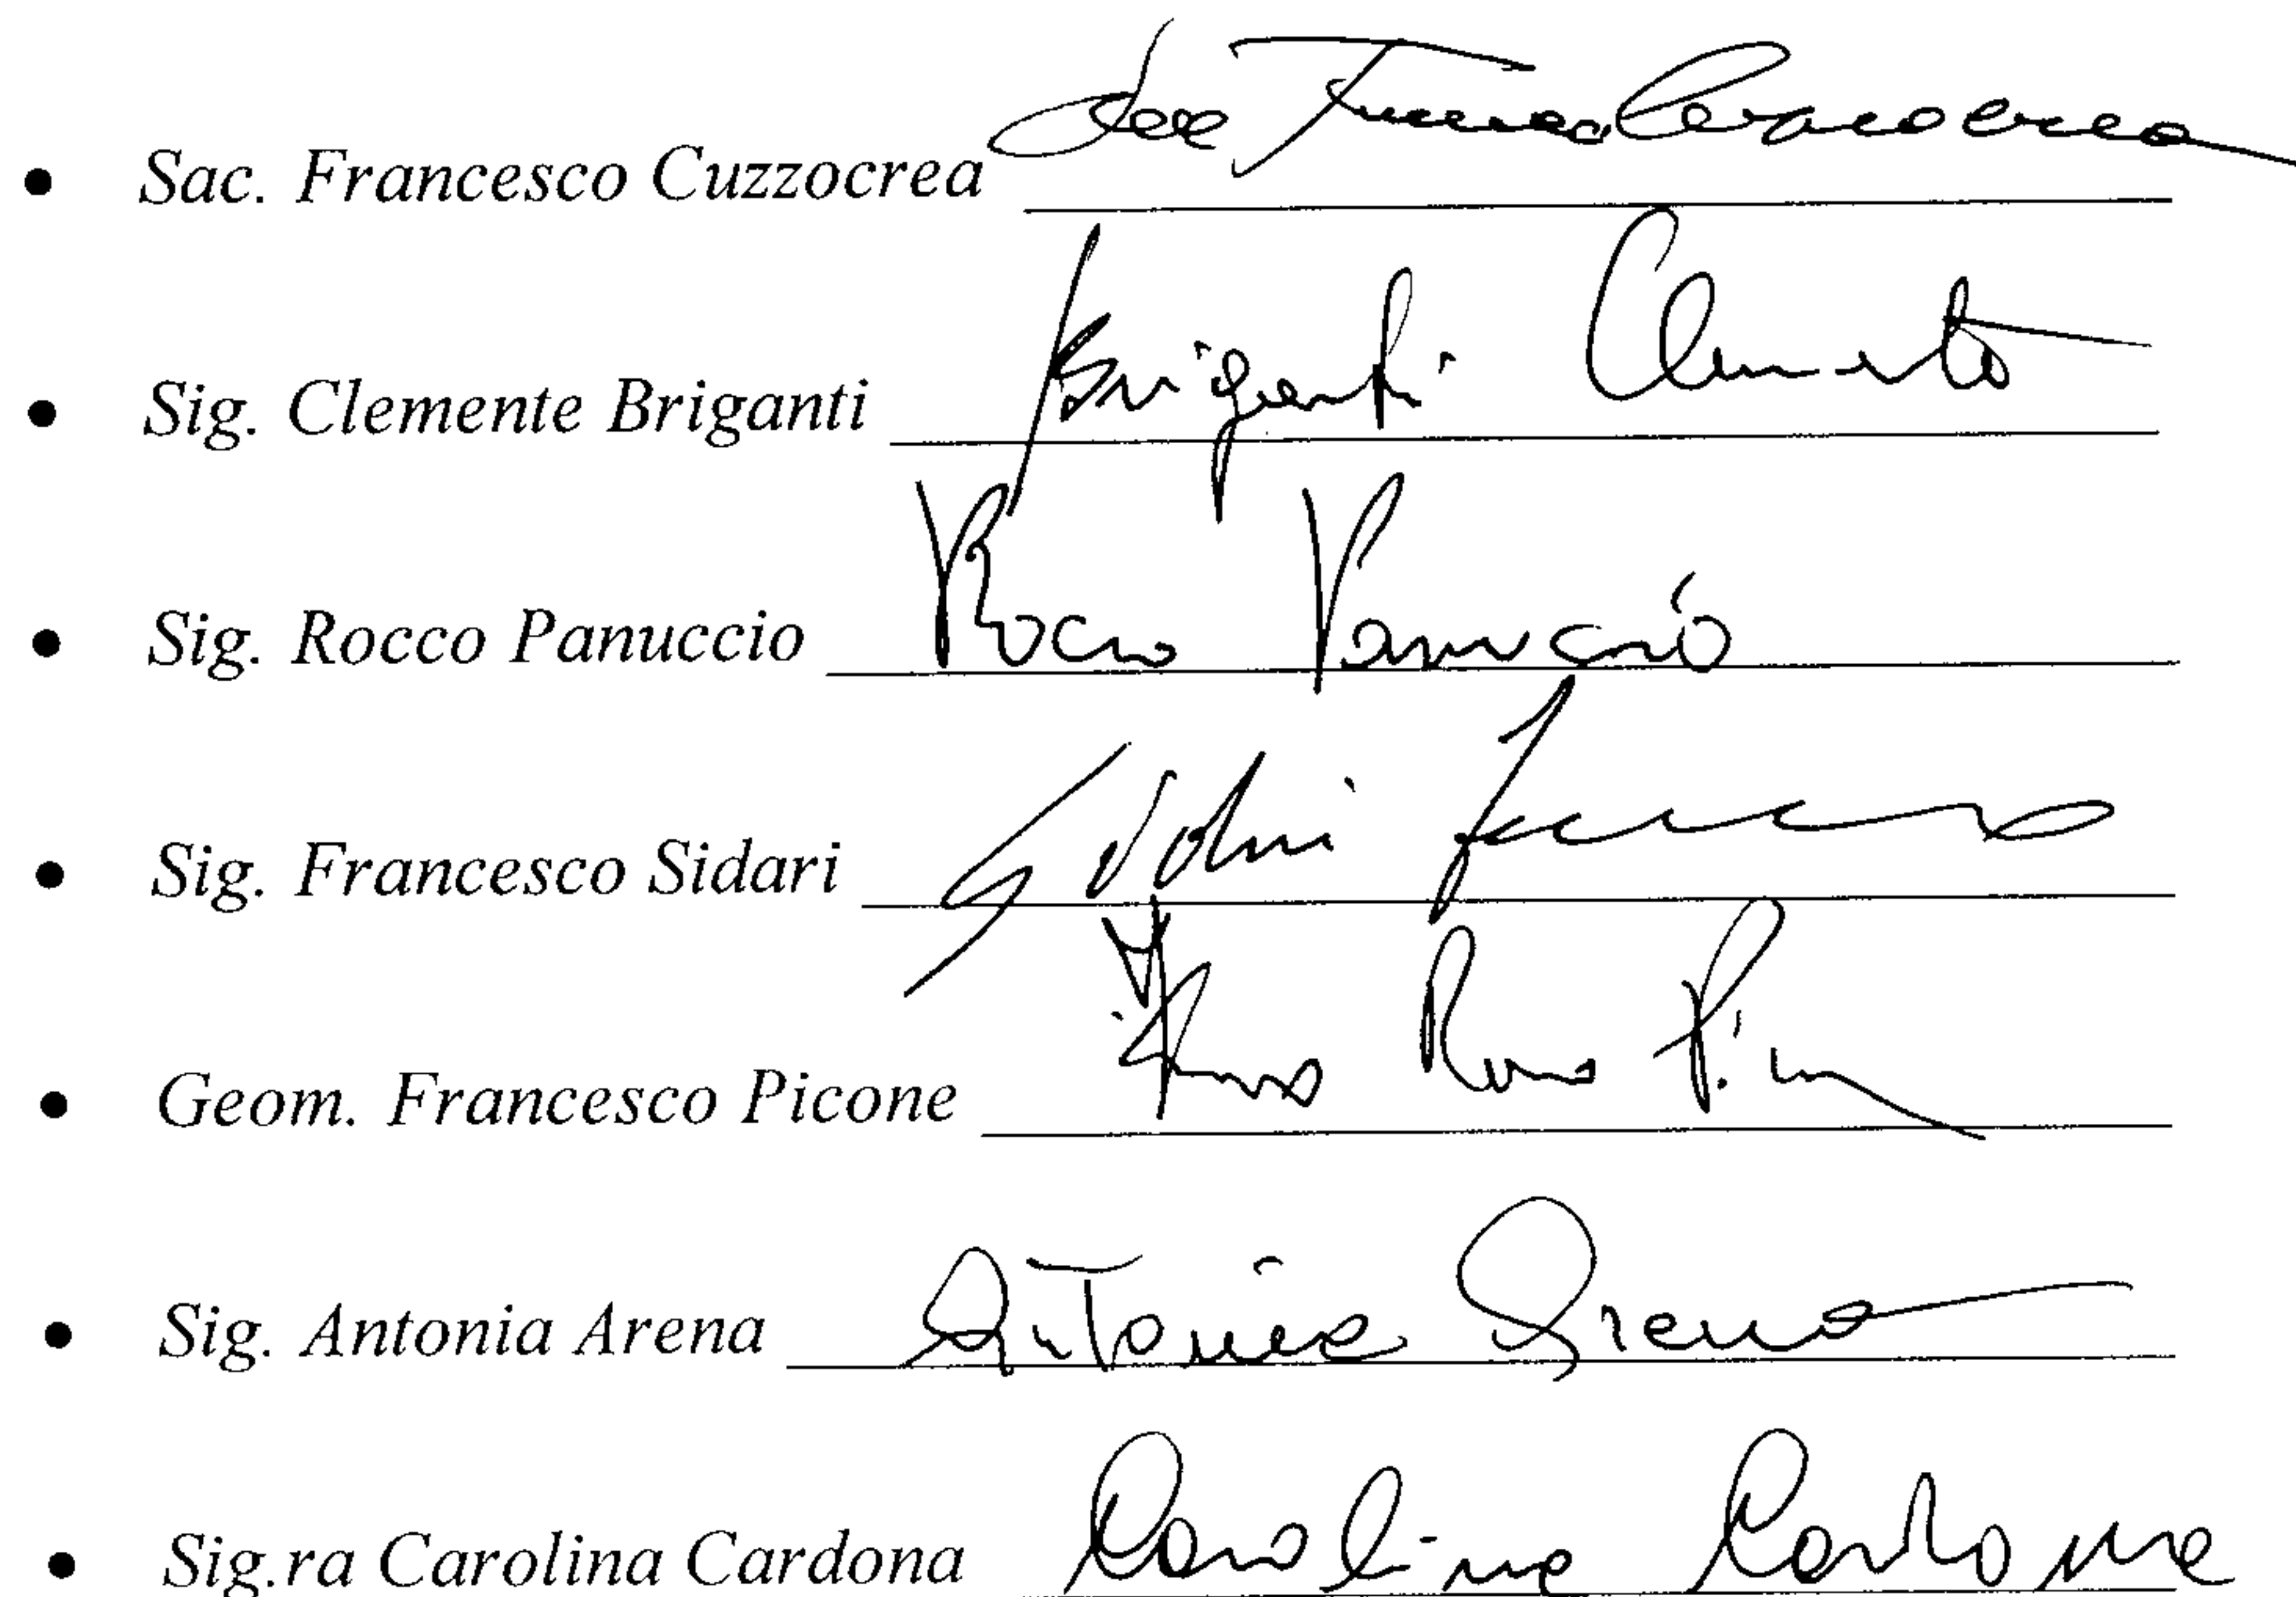 • Sac. Francesco Cuzzocrea
• Sig. Clemente Briganti Briganti Clemente
• Sig. Rocco Panuccio Rocco Panuccio
• Sig. Francesco Sidari
• Geom. Francesco Picone
• Sig. Antonia Arena Antonia Arena
• Sig.ra Carolina Cardona Carolina Cardona